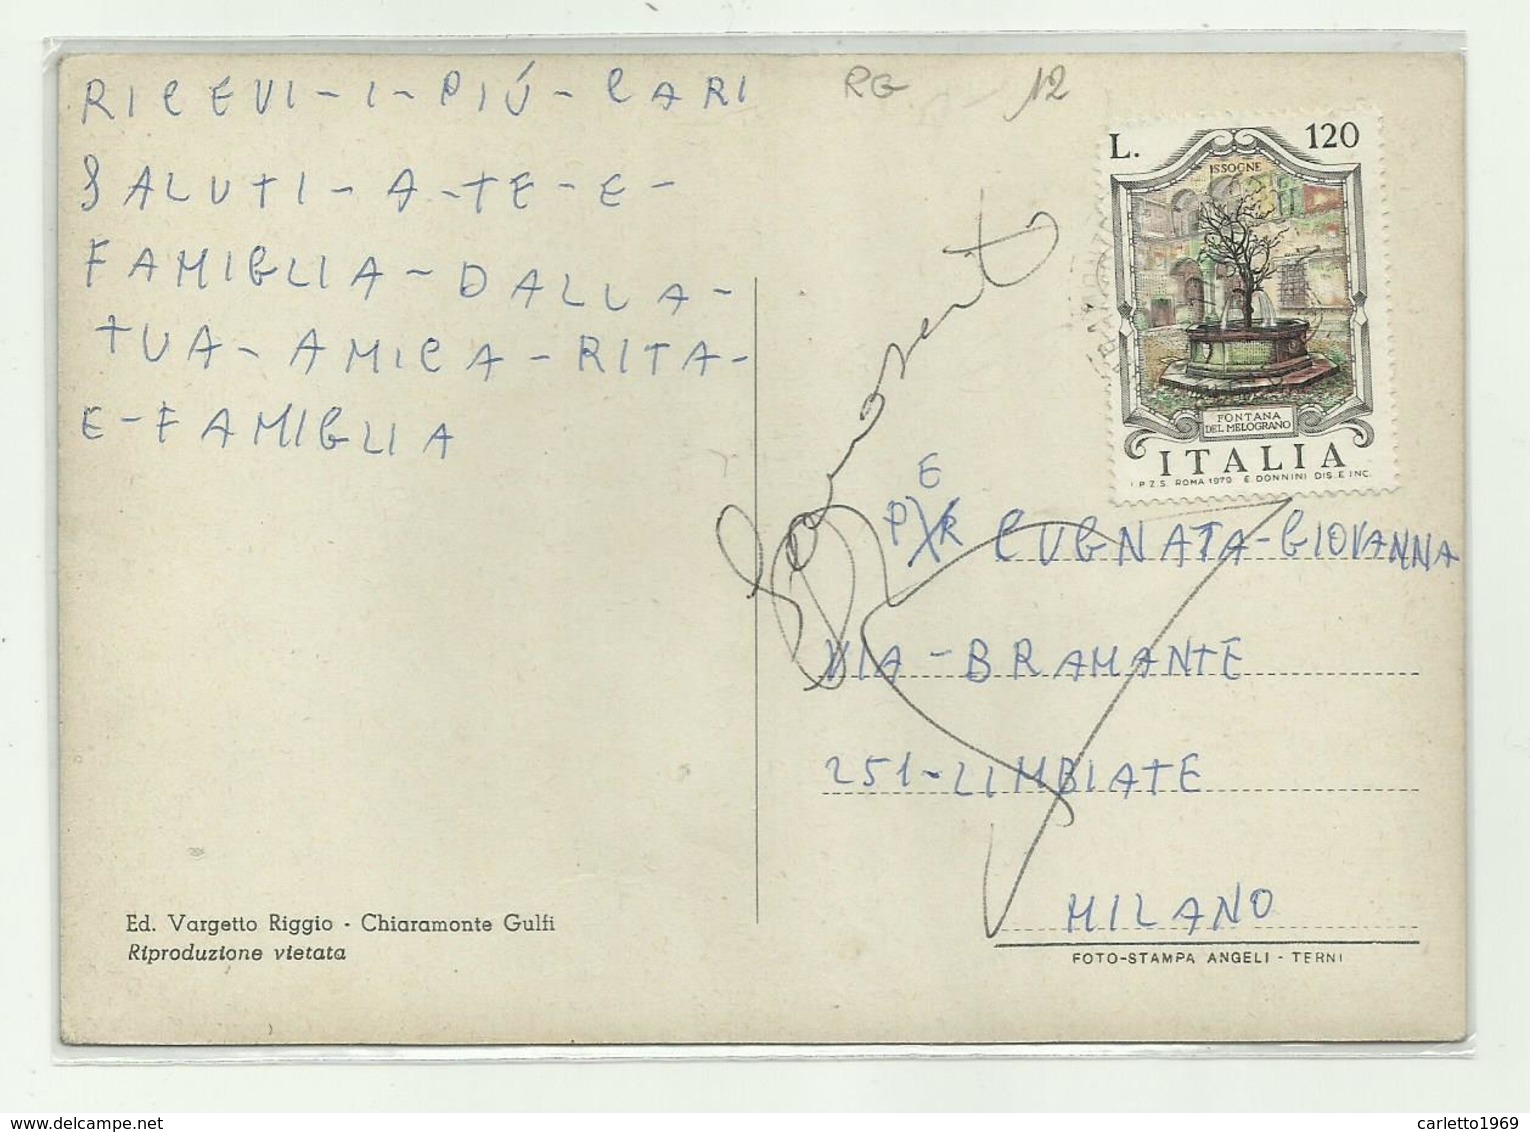 RICEVI-I-PIÚ-CARI
SALUTI-A-TE-E-
FAMIGLIA-DALLA-
TUA-AMICA-RITA-
E-FAMIGLIA
Ed. Vargetto Riggio - Chiaramonte Gulfi
Riproduzione vietata
RG 12
L. 120
ISSOGNE
FONTANA
DEL MELOGRANO
ITALIA
I.P.Z.S. ROMA 1979 E. DONNINI DIS. E INC.
E
CUGNATA-GIOVANNA
VIA-BRAMANTE
251-LIMBIATE
MILANO
FOTO-STAMPA ANGELI - TERNI
delcampe.net
carletto1969